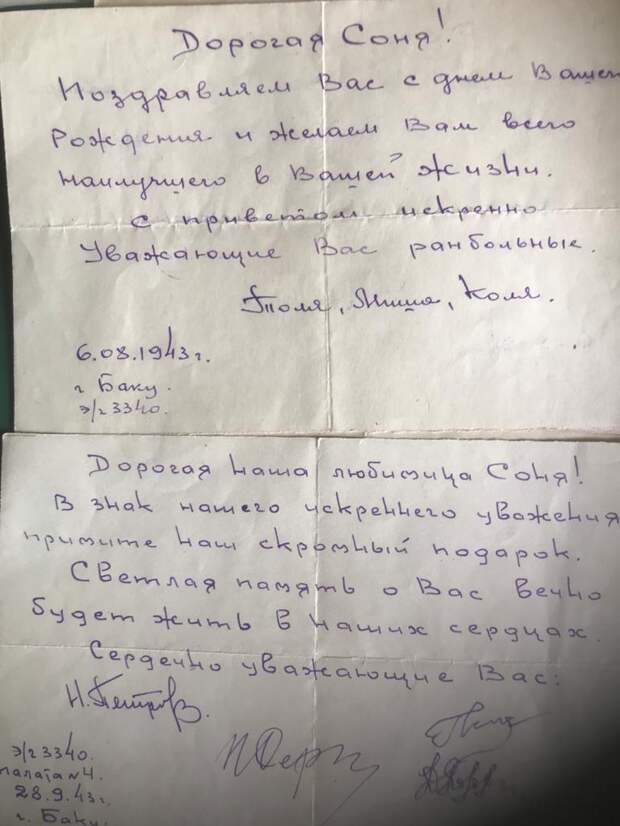 Дорогая Соня!
Поздравляем Вас с днем Вашей
Рождения и желаем Вам всего
наилучшего в Вашей жизни.
С приветом искренно
Уважающие Вас ранбольные.
Толя, Миша, Коля.
6.08.1943г.
г Баку.
э/г 3340.
Дорогая наша любимица Соня!
В знак нашего искреннего уважения
примите наш скромный подарок.
Светлая память о Вас вечно
будет жить в наших сердцах.
Сердечно уважающие Вас:
Н. Петров.
э/г 3340.
палата №4.
28.9.43г.
г. Баку.